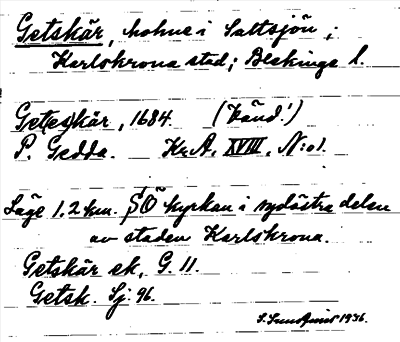 Getskär, holme i Saltsjön;
Karlskrona stad; Blekinge l.
Get(es)kär, 1684. (Länd!)
P. Gedda. Kr.A. XVIII, N:o 1.
Läge 1.2 km. SÖ kyrkan i sydöstra delen
av staden Karlskrona.
Getskär ek. G. 11.
Getsk. Sj. 96.
1936.